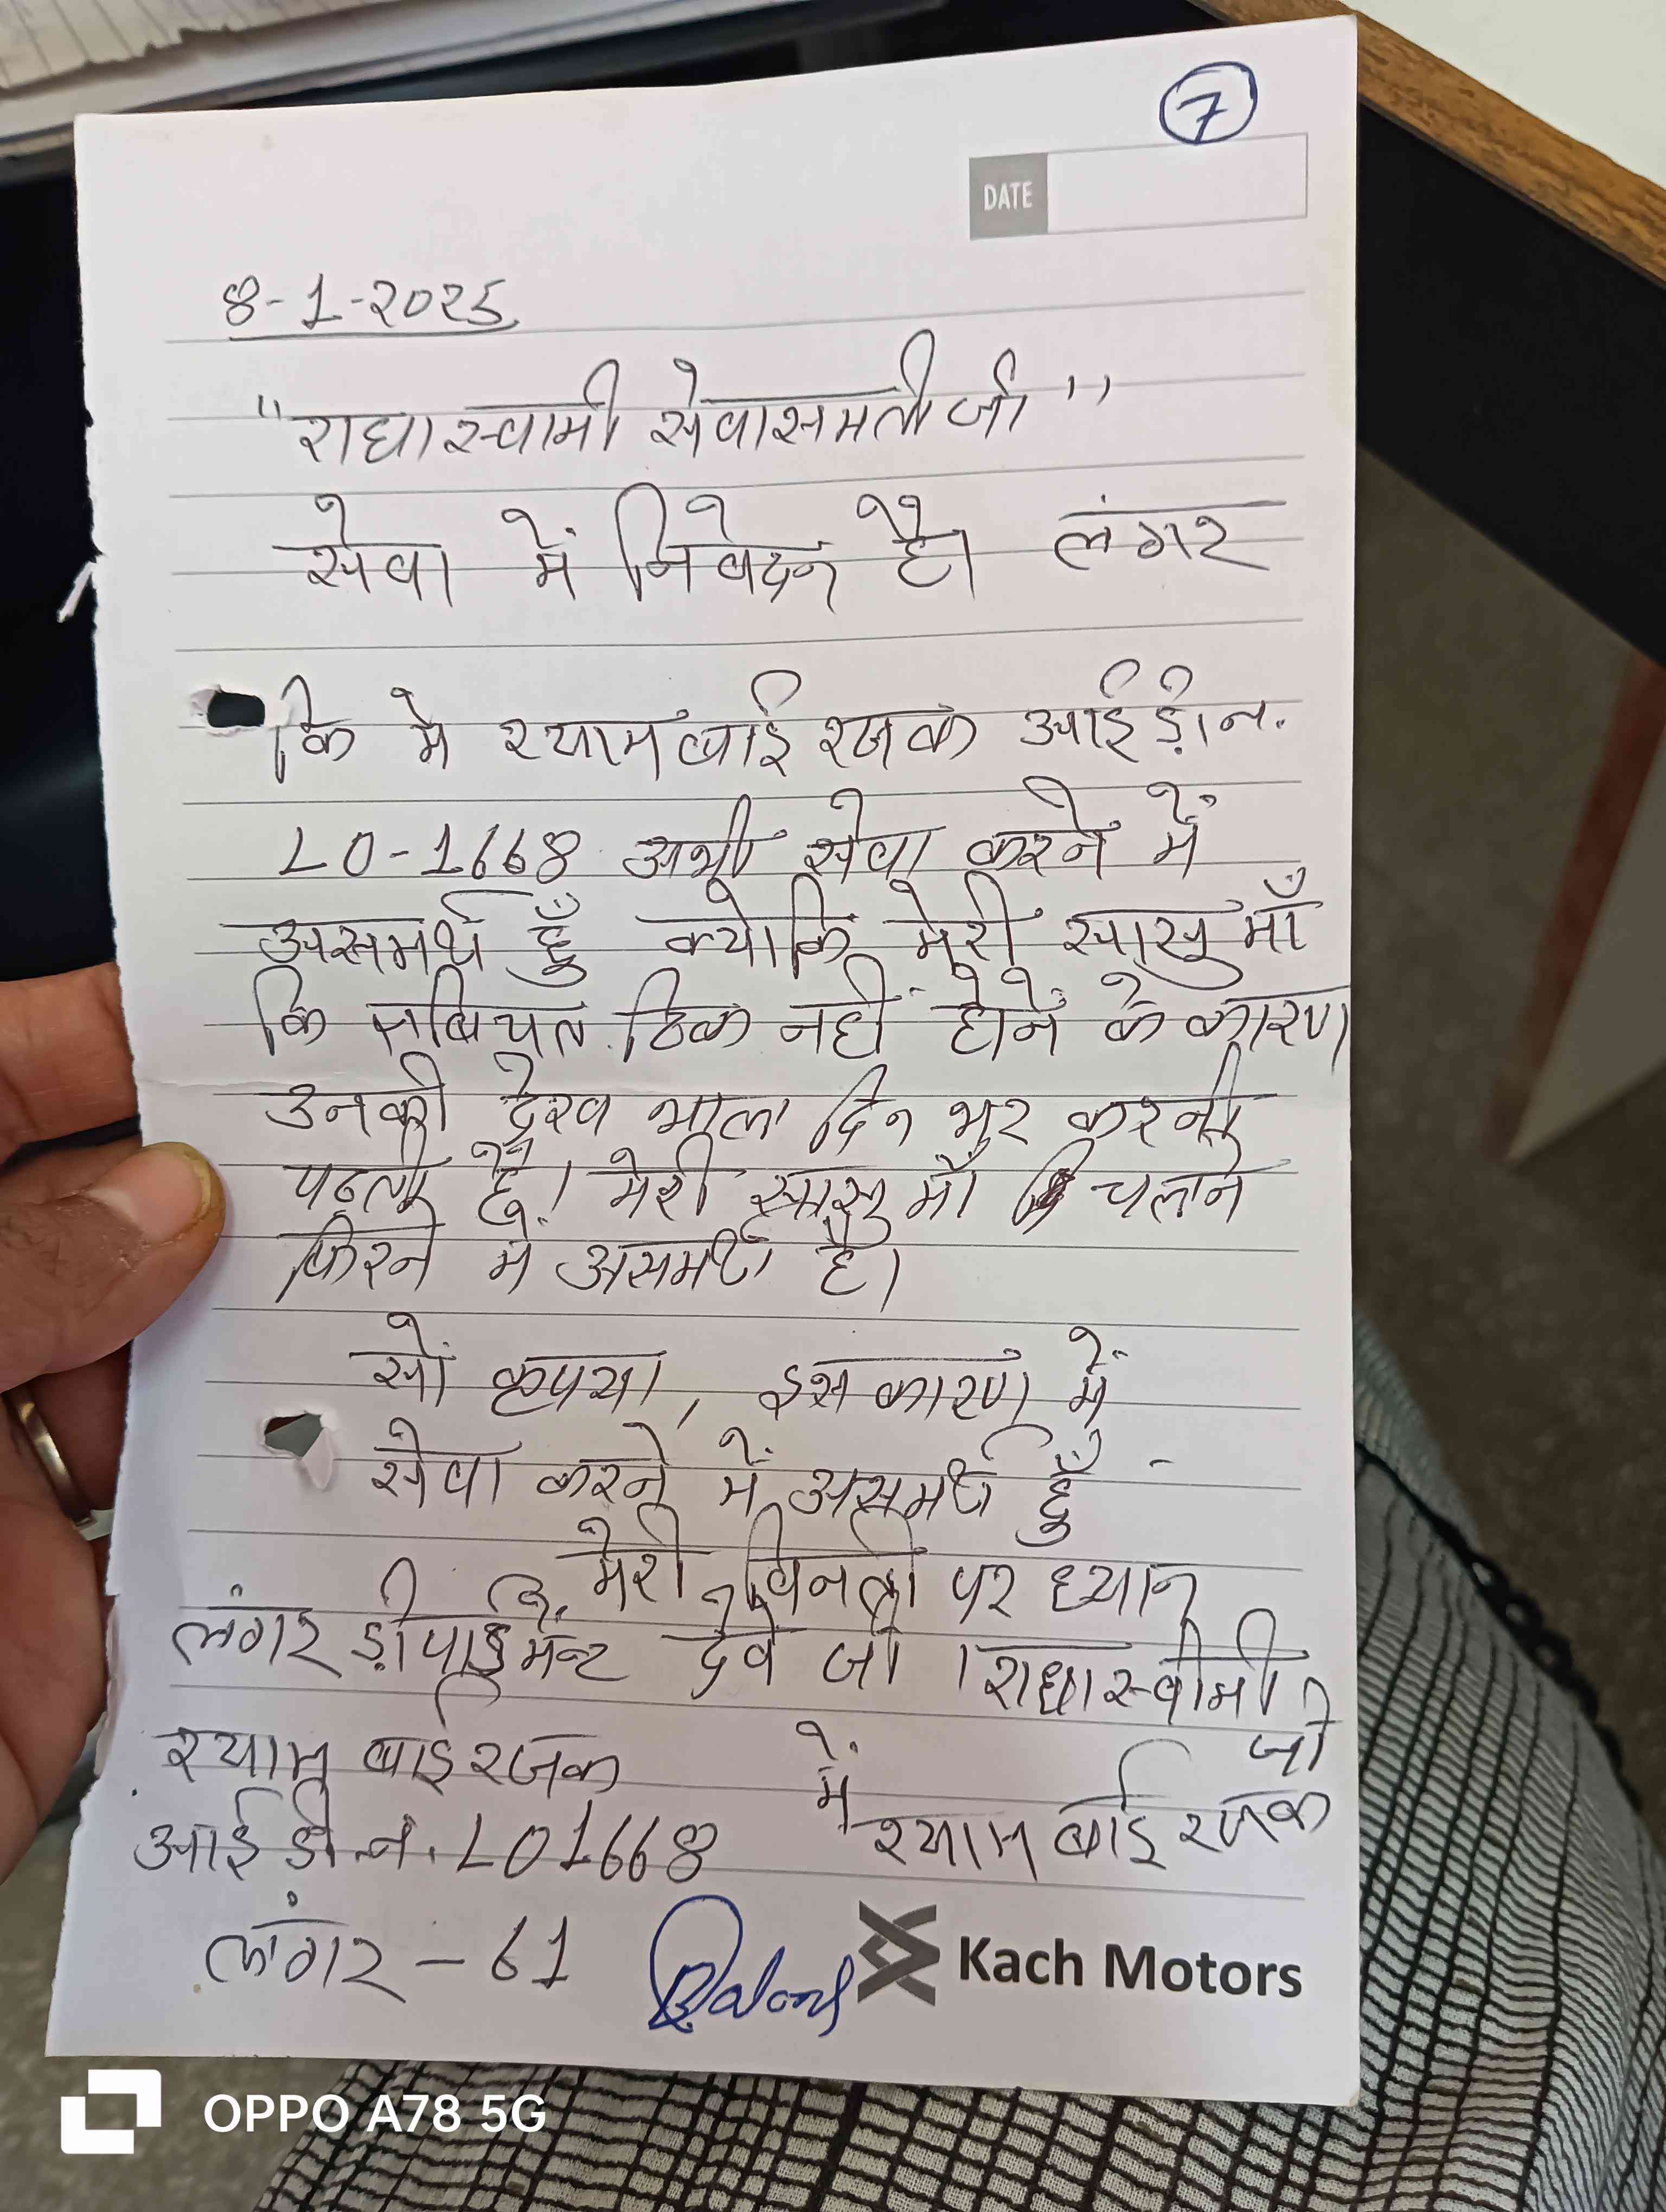 7
DATE
8-1-2025
"राधास्वामी सेवासमती जी"
सेवा में निवेदन है। लंगर
कि मे श्यामबाई रजक आई डी न.
LO-1668 अभी सेवा करने में
असमर्थ हूँ क्योकि मेरी सासु माँ
कि तबियत ठिक नहीं होने के कारण
उनकी देख भाल दिन भर करनी
पड़ती है। मेरी सासु माँ चलने
फिरने मे असमर्थ है।
सो कृपया, इस कारण में
सेवा करने में असमर्थ हूँ
मेरी विनती पर ध्यान
लंगर डीपार्डमेंन्ट देवे जी। राधास्वामी
जी
श्याम बाई रजक
में श्याम बाई रजक
आई डी न. LO1668
लंगर - 61
Kach Motors
OPPO A78 5G